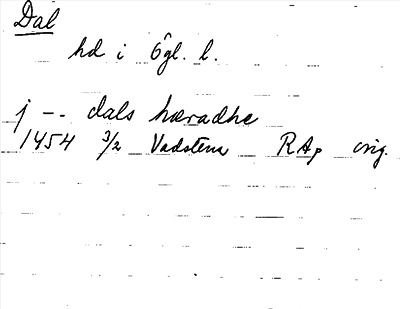 Dal
hd i Ögl. l.
j -- dals hæradhe
1454 3/2 Vadstena RAp orig.